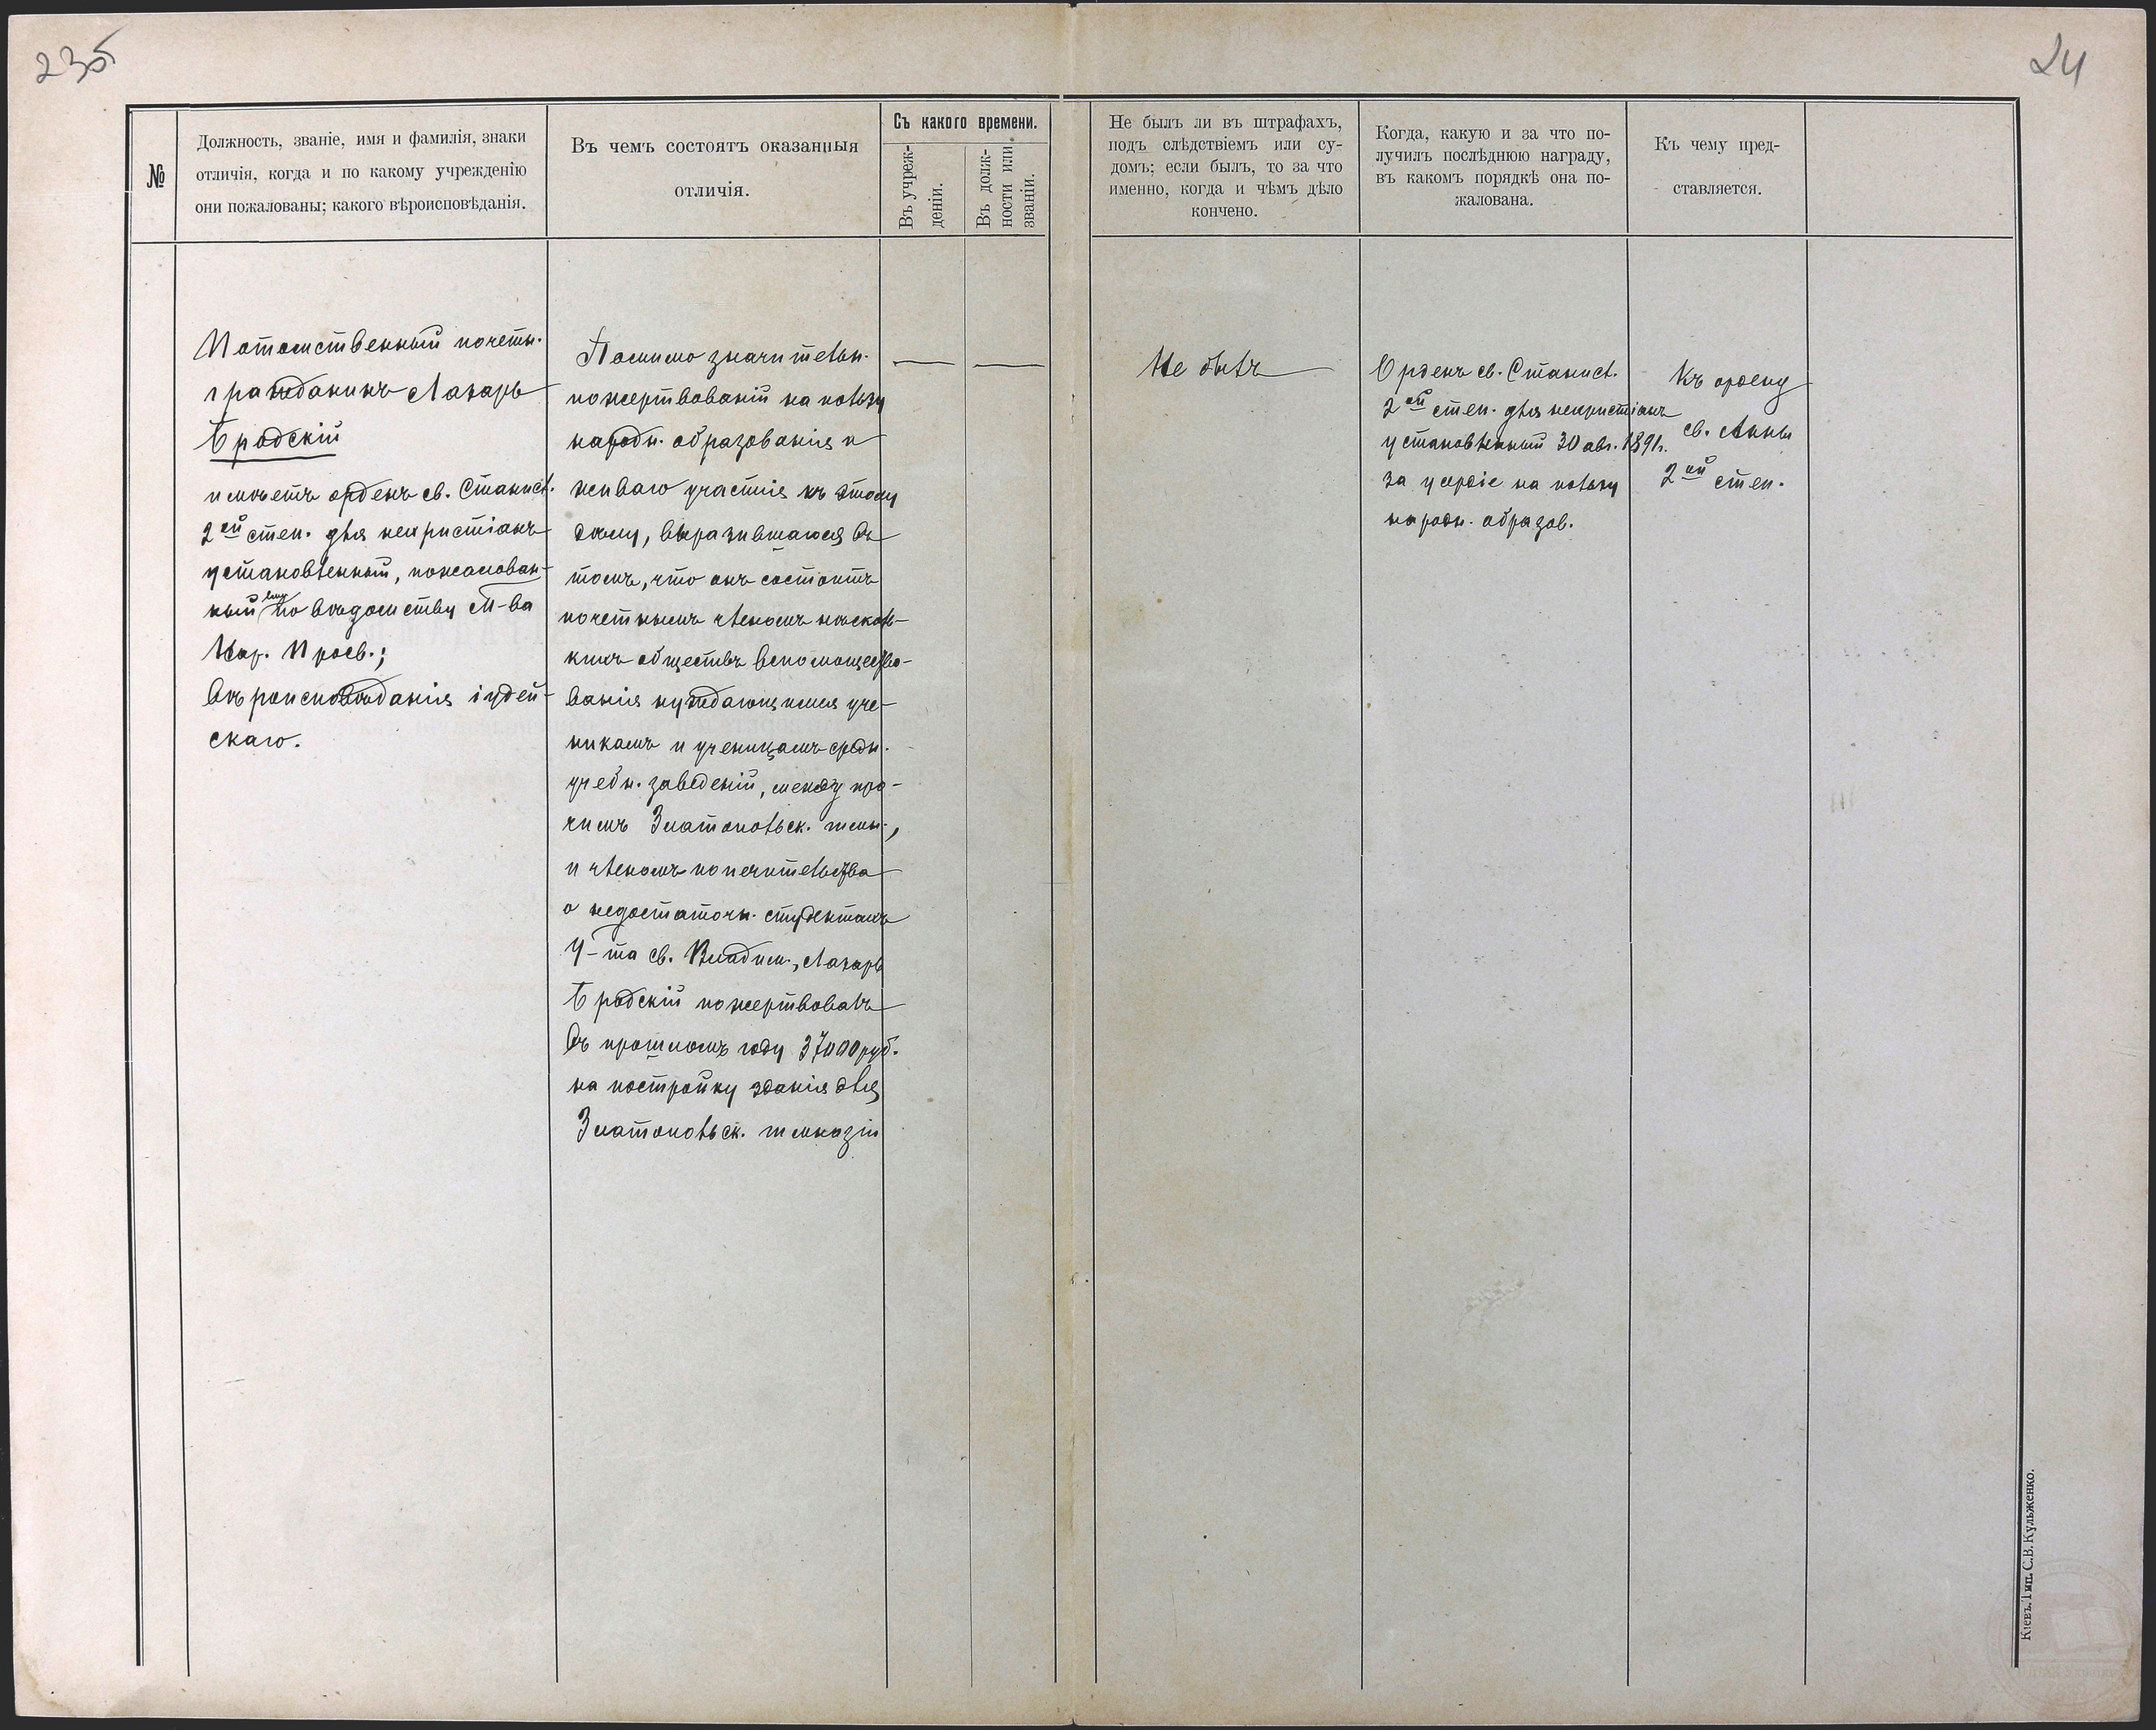 235
24
№
Должность, званіе, имя и фамилія, знаки
отличія, когда и по какому учрежденію
они пожалованы; какого вѣроисповѣданія.
Въ чемъ состоятъ оказанныя
отличія.
Съ какого времени.
Въ учреж-
деніи.
Въ долж-
ности или
званіи.
Не былъ ли въ штрафахъ,
подъ слѣдствіемъ или су-
домъ; если былъ, то за что
именно, когда и чѣмъ дѣло
кончено.
Когда, какую и за что по-
лучилъ послѣднюю награду,
въ какомъ порядкѣ она по-
жалована.
Къ чему пред-
ставляется.
Потомственный почетн.
гражданинъ Лазарь
Бродскій
имѣетъ орденъ св. Станисл.
2ой степ. для нехристіанъ
установленный, пожалован-
ный ему по вѣдомству М-ва
Нар. Просв.;
вѣроисповѣданія іудей-
скаго.
Помимо значительн.
пожертвованій на пользу
народн. образованія и
живаго участія къ этому
дѣлу, выразившагося въ
томъ, что онъ состоитъ
почетнымъ членомъ нѣсколь-
кихъ обществъ вспомощество-
ванія нуждающимся уче-
никамъ и ученицамъ средн.
учебн. заведеній, между про-
чимъ Златопольск. гимн.,
и членомъ попечительства
о недостаточн. студентахъ
У-та св. Владим., Лазарь
Бродскій пожертвовалъ
въ прошломъ году 37000 руб.
на постройку зданія для
Златопольск. гимназіи
Не былъ
Орденъ св. Станисл.
2ой степ. для нехристіанъ
установленный 30 авг. 1891г.
за усердіе на пользу
народн. образов.
Къ ордену
св. Анны
2ой степ.
Кіевъ. Тип. С. В. Кульженко.